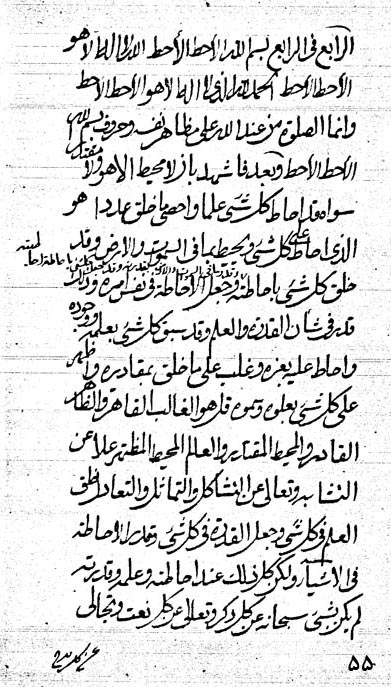 الرابع فى الرابع بسم الله الأحط الأحط الله لا اله الا هو
الأحط الأحط الحمد لله الذى لا اله الا هو الأحط الأحط
وانما الصلوة من عند الله على مظاهر نفسه وحروف بسم الله
الأحط الأحط وبعد فاشهد بان لا محيط الا هو ولا مقتدر
سواه قد احاط كل شىء علما واحصى ما خلق عددا هو
الذى احاط على كل شىء ويحيط بما فى السموات والارض وقد
خلق كل شىء باحاطته وجعل الاحاطة فى نفس امره
قدير فى شان القدرة والعلم وقد سبق كل شىء بعلمه ووجوده
واحاط عليه بعزه وغلب على ما خلق بمقاديره
على كل شىء بعلوه وسموه قل هو الغالب القاهر والظاهر
القادر والمحيط المقتدر والعالم المحيط المطهر علا عن
التشابه وتعالى عن التشاكل والتماثل والتعادل خلق
العلم فى كل شىء وجعل القدرة فى كل شىء وقدر الاحاطة
فى الاشياء ولكن كل ذلك عند احاطته وعلمه وقدرته
لم يكن بشىء سبحانه عن كل ذكر وتعالى عن كل نعت وتجالى
عن كل
۵۵